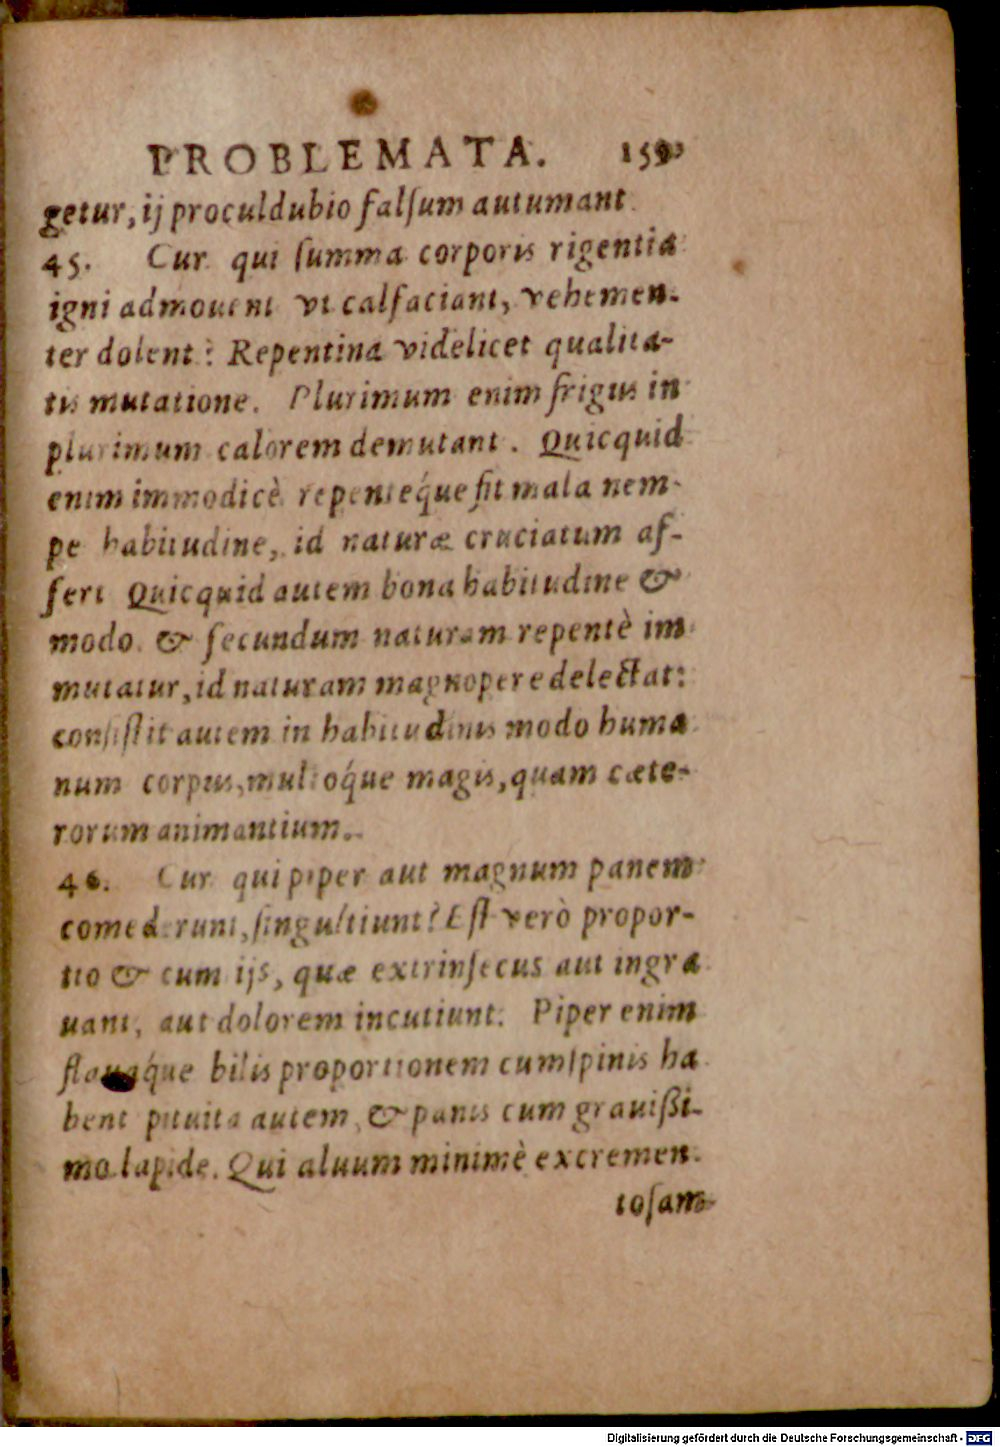 PROBLEMATA. 159
getur, ij proculdubio falſum autumant
45. Cur qui ſumma corporis rigentia
igni admouent vt calfaciant, vehemen-
ter dolent? Repentina videlicet qualita-
tis mutatione. Plurimum enim frigus in
plurimum calorem demutant. Quicquid
enim immodicè repenteq́ue fit mala nem-
pe habitudine, id naturæ cruciatum af-
fert Quicquid autem bona habitudine &
modo & ſecundum naturam repentè im
mutatur, id naturam magnopere delectat:
conſiſtit autem in habitudinis modo huma
num corpus, multoq́ue magis, quam cæte-
rorum animantium.
46. Cur qui piper aut magnum panem
comederunt, ſingultiunt? Eſt verò propor-
tio & cum ijs, quæ extrinſecus aut ingra
uant, aut dolorem incutiunt. Piper enim
flauaq́ue bilis proportionem cum ſpinis ha
bent pituita autem, & panis cum grauißi-
mo lapide. Qui aluum minimè excremen-
toſam
Digitalisierung gefördert durch die Deutsche Forschungsgemeinschaft - DFG